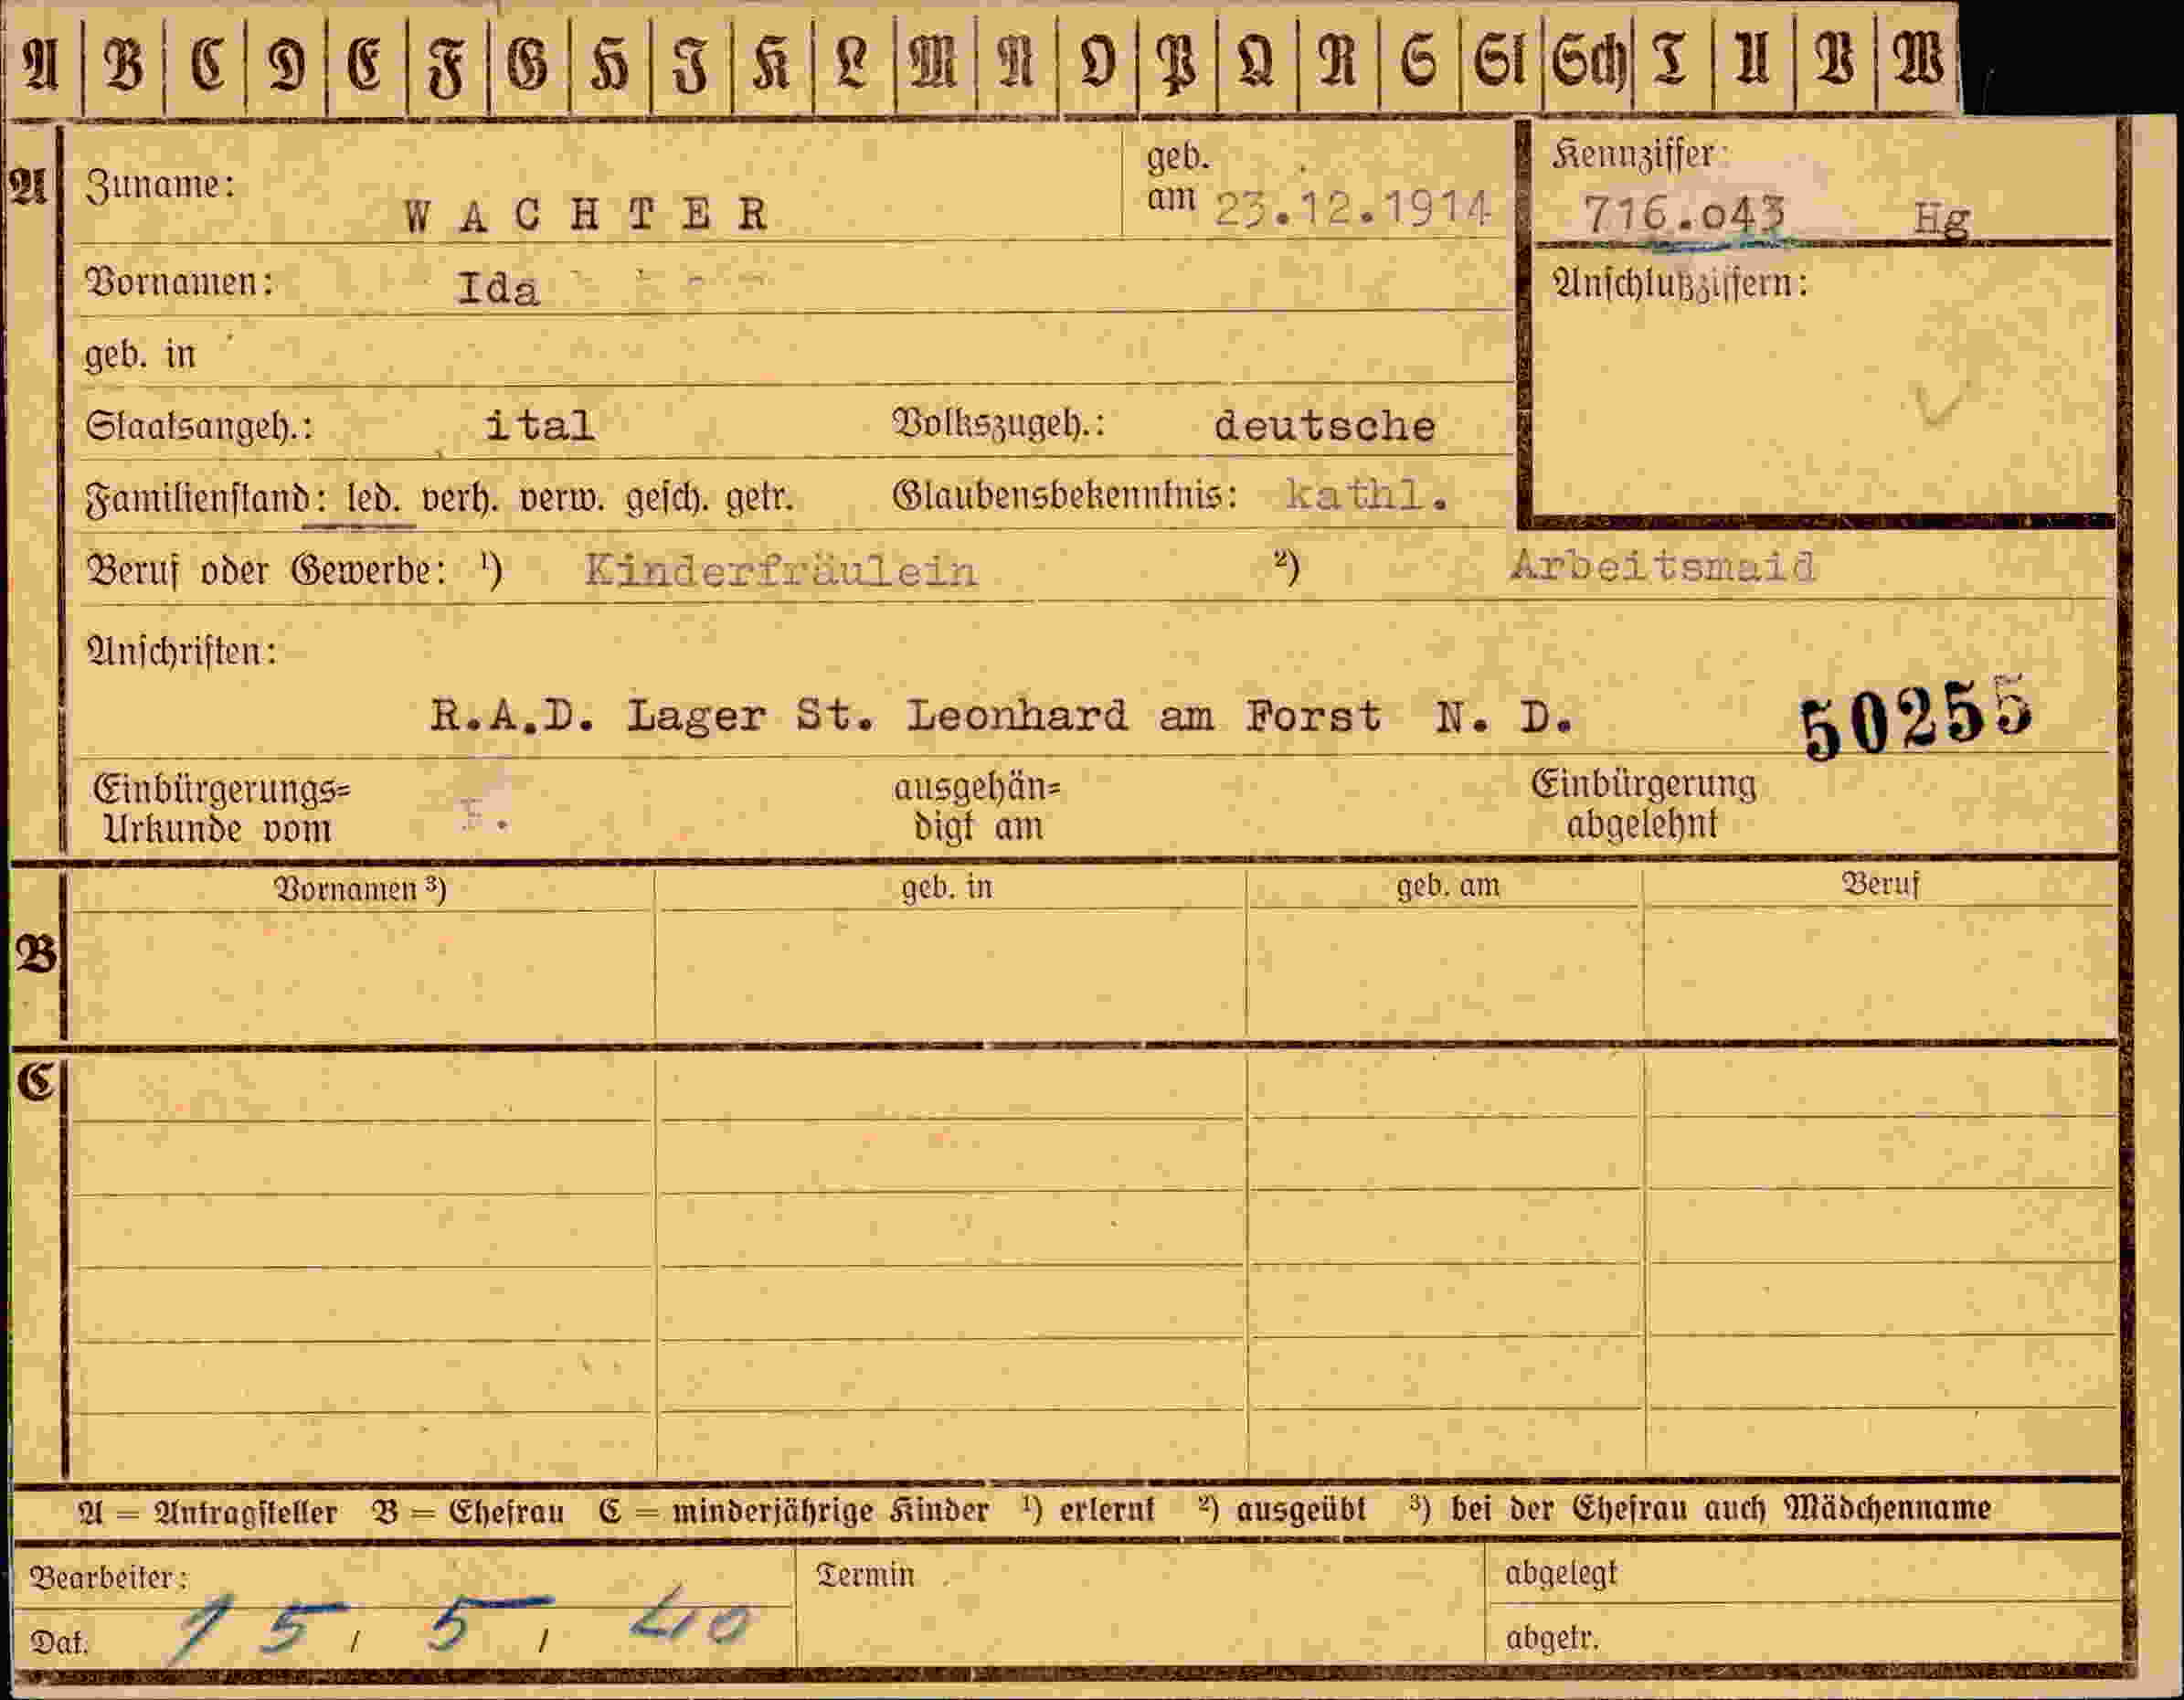 A B C D E F G H J K L M N O P Q R S St Sch T U V W
A
Zuname: WACHTER geb. am 23.12.1914
Kennziffer: 716.043 Hg
Vornamen: Ida
Anschlußziffern:
geb. in
Staatsangeh.: ital Volkszugeh.: deutsche
Familienstand: led. verh. verw. gesch. getr. Glaubensbekenntnis: kathl.
Beruf oder Gewerbe: ¹) Kinderfräulein ²) Arbeitsmaid
Anschriften:
R.A.D. Lager St. Leonhard am Forst N. D. 50255
Einbürgerungs= Urkunde vom ausgehän= digt am Einbürgerung abgelehnt
Vornamen ³) geb. in geb. am Beruf
B
C
A = Antragsteller B = Ehefrau C = minderjährige Kinder ¹) erlernt ²) ausgeübt ³) bei der Ehefrau auch Mädchenname
Bearbeiter: Termin abgelegt
Dat. 15, 5, 40 abgetr.